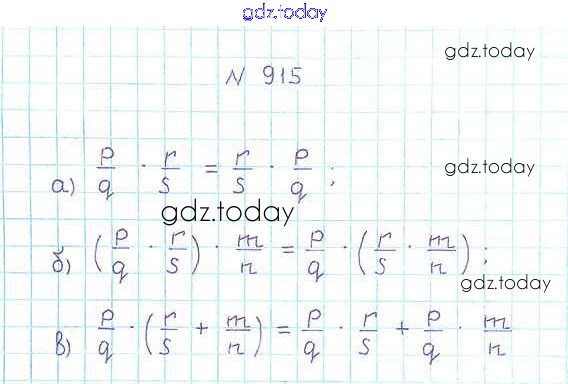 gdz.today
gdz.today
N 915
а) p/q · r/s = r/s · p/q ; gdz.today
gdz.today
б) (p/q · r/s) · m/n = p/q · (r/s · m/n) ;
gdz.today
в) p/q · (r/s + m/n) = p/q · r/s + p/q · m/n